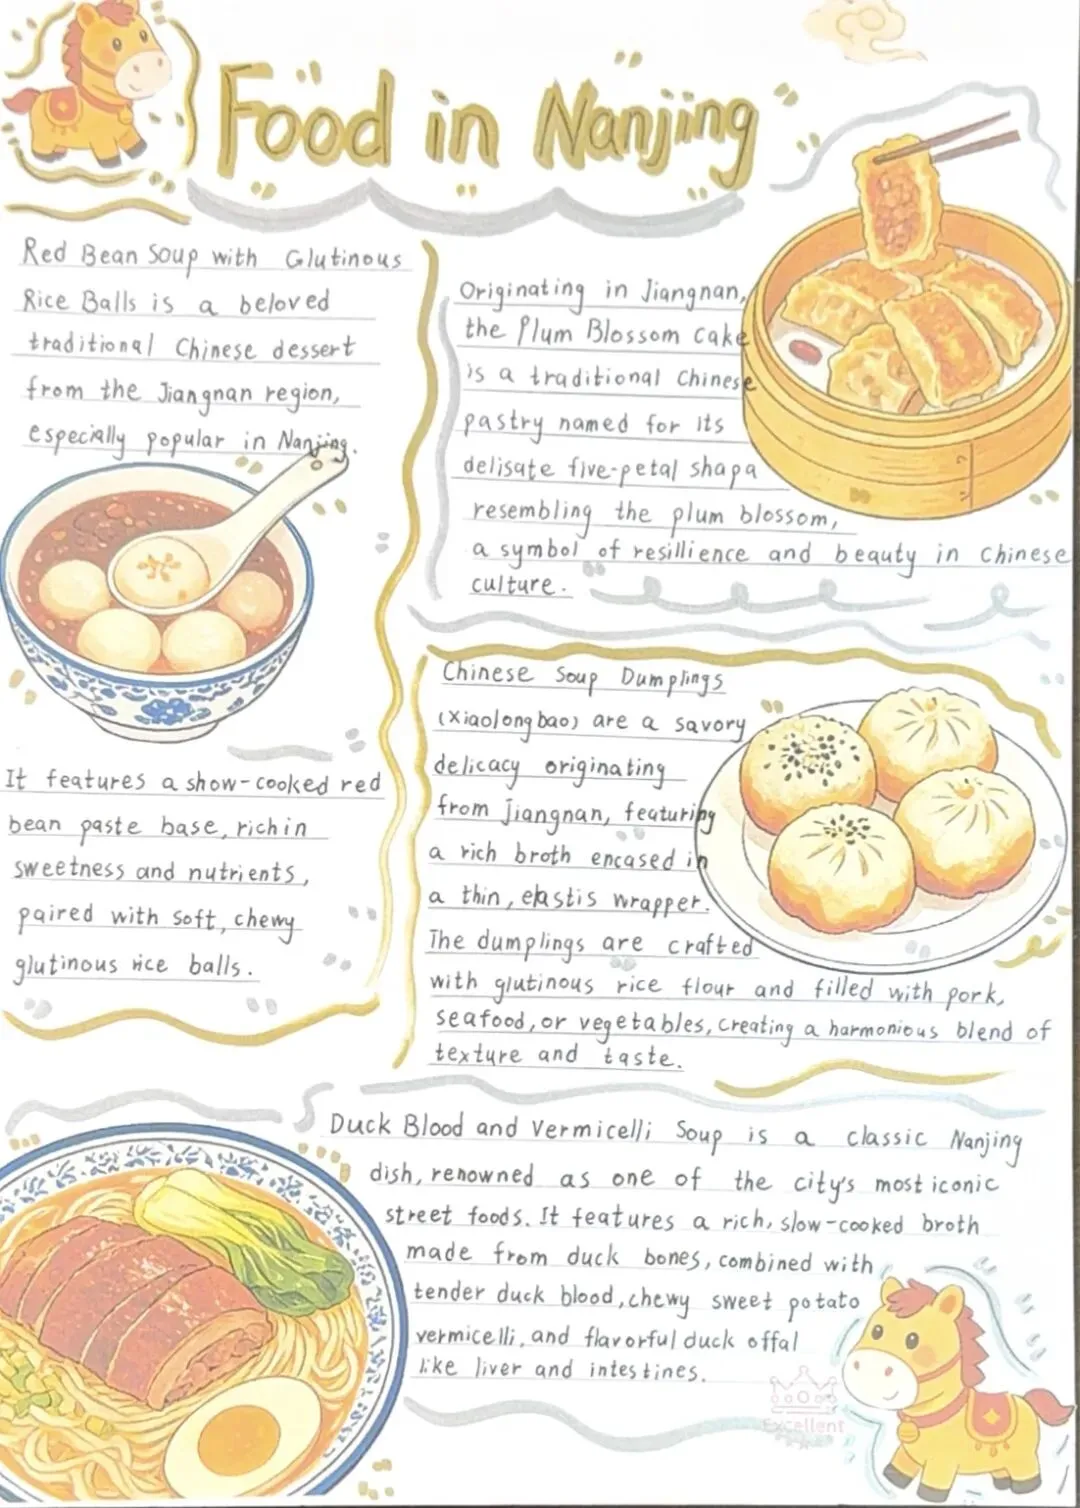 Food in Nanjing
Red Bean Soup with Glutinous
Rice Balls is a beloved
traditional Chinese dessert
from the Jiangnan region,
especially popular in Nanjing.
It features a show-cooked red
bean paste base, rich in
sweetness and nutrients,
paired with soft, chewy
glutinous rice balls.
Originating in Jiangnan,
the Plum Blossom Cake
is a traditional Chinese
pastry named for its
delisate five-petal shapa
resembling the plum blossom,
a symbol of resillience and beauty in Chinese
culture.
Chinese Soup Dumplings
(Xiaolongbao) are a savory
delicacy originating
from Jiangnan, featuring
a rich broth encased in
a thin, elastis wrapper.
The dumplings are crafted
with glutinous rice flour and filled with pork,
seafood, or vegetables, creating a harmonious blend of
texture and taste.
Duck Blood and Vermicelli Soup is a classic Nanjing
dish, renowned as one of the city's most iconic
street foods. It features a rich, slow-cooked broth
made from duck bones, combined with
tender duck blood, chewy sweet potato
vermicelli, and flavorful duck offal
like liver and intestines.
Excellent